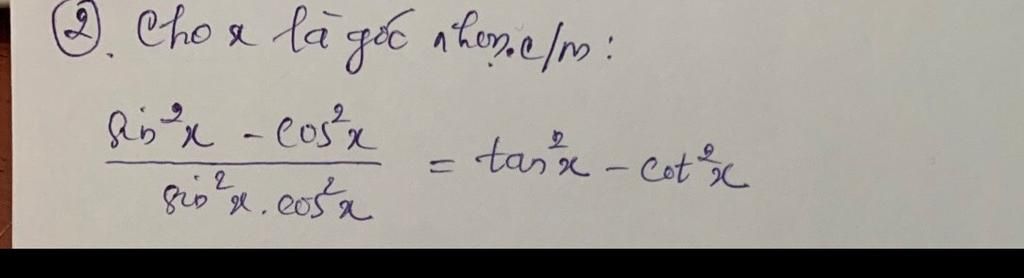 ②. Cho x là góc nhọn. c/m:
sin²x - cos²x / sin²x . cos²x = tan²x - cot²x